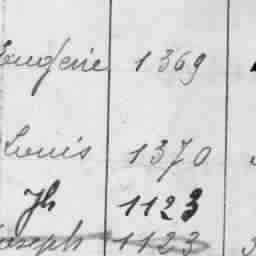 Eugenie 1369
Louis 1370
Jh 1123
Joseph 1123